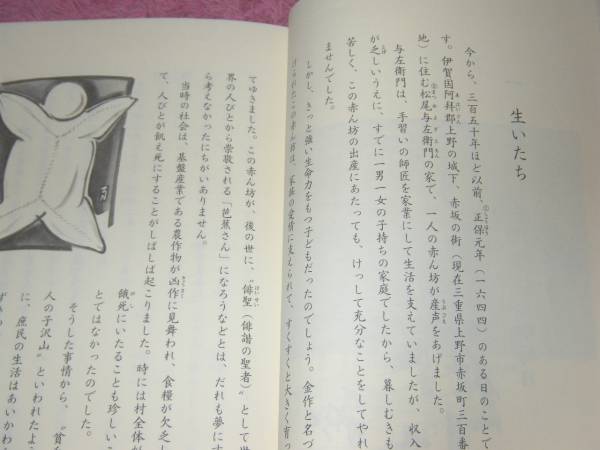 生いたち
今から、三百五十年ほど以前、正保元年（一六四四）のある日のことで
す。伊賀国阿拝郡上野の城下、赤坂の街（現在三重県上野市赤坂町三百番
地）に住む松尾与左衛門の家で、一人の赤ん坊が産声をあげました。
与左衛門は、手習いの師匠を家業にして生活を支えていましたが、収入
が乏しいうえに、すでに一男一女の子持ちの家庭でしたから、暮しむきも
苦しく、この赤ん坊の出産にあたっても、けっして充分なことをしてやれ
ませんでした。
しかし、きっと強い生命力をもつ子どもだったのでしょう。金作と名づ
けられたこの赤ん坊は、家族の愛情に支えられて、すくすくと大きく育っ
てゆきました。この赤ん坊が、後の世に、〝俳聖（俳諧の聖者）〟として世
界の人びとから崇敬される「芭蕉さん」になろうなどとは、だれも夢にす
ら考えなかったにちがいありません。
当時の社会は、基盤産業である農作物が凶作に見舞われ、食糧が欠乏し
て、人びとが飢え死にすることがしばしば起こりました。時には村全体が
餓死にいたることも珍しいこ
とではなかったのでした。
そうした事情から、〝貧
人の子沢山〟といわれたよう
に、庶民の生活はあいかわ